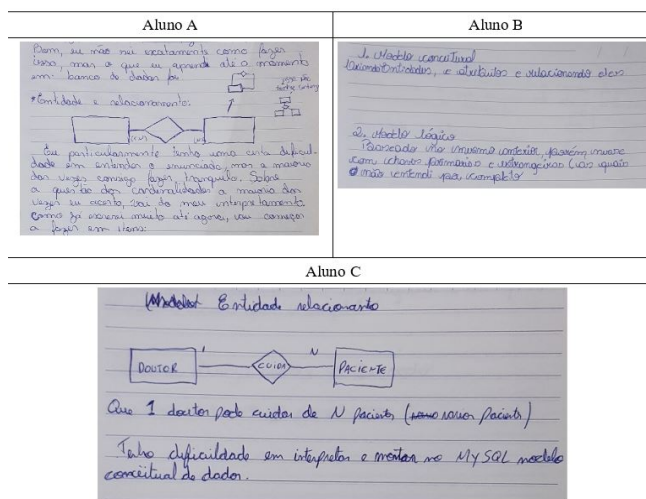 Aluno A
Aluno B
Bom, eu não sei exatamente como fazer
isso, mas o que eu aprendi até o momento
em banco de dados foi:
*Entidade e relacionamento:
Eu particularmente tenho uma certa dificul-
dade em entender o enunciado, mas a maioria
das vezes consigo fazer, tranquilo. Sobre
a questão das cardinalidades a maioria das
vezes eu acerto, vai do meu interpretamento.
Como já escrevi muito até agora, vou começar
a fazer em itens:
1. Modelo conceitual
Criando Entidades, e atributos e relacionando eles
2. Modelo lógico
Baseado no mesmo porém
com chaves primarias e estrangeiras (as quais
não entendi por completo
Aluno C
Entidade relacionanto
DOUTOR
1
CUIDA
N
PACIENTE
Que 1 doutor pode cuidar de N pacients (varios pacients)
Tenho dificuldade em interpretar e montar no MySQL modelo
conceitual de dados.